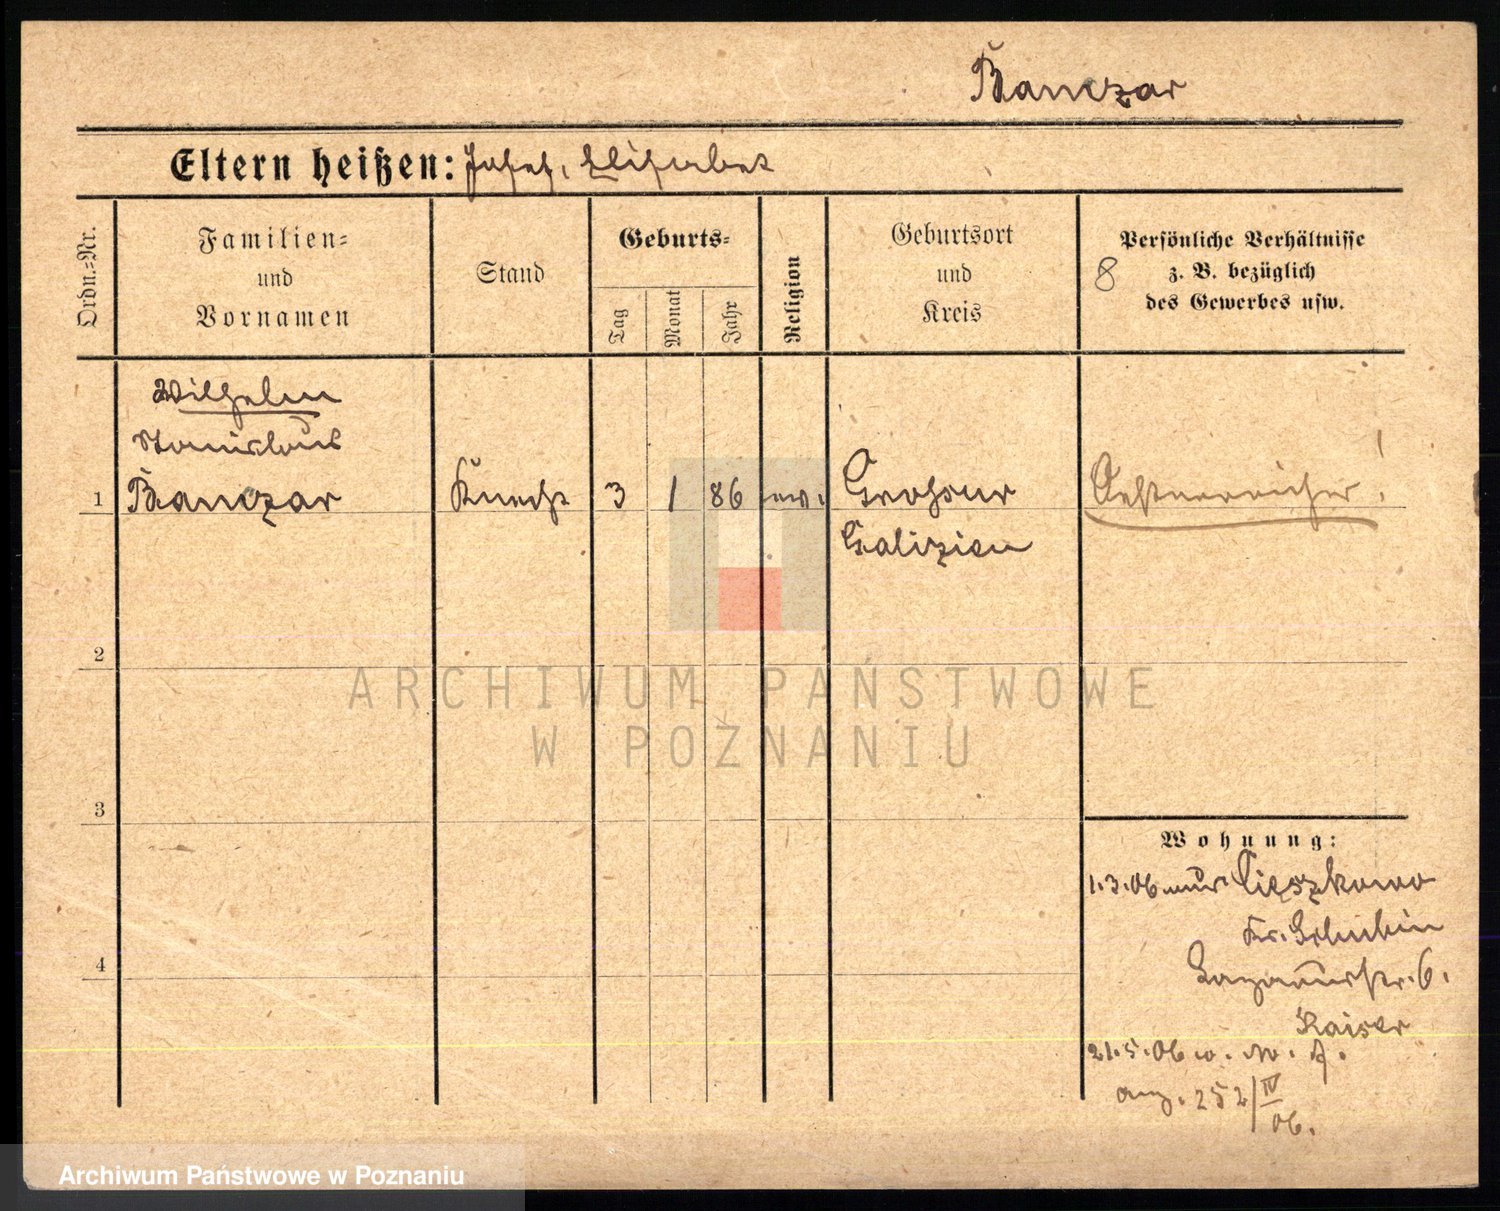 Banczar
Eltern heißen: Josef, Elisabet
Ordn.=Nr.
Familien=
und
Vornamen
Stand
Geburts=
Tag
Monat
Jahr
Religion
Geburtsort
und
Kreis
Persönliche Verhältnisse
8 z. B. bezüglich
des Gewerbes usw.
Wilhelm
Stanislaus
1 Banczar Knecht 3 1 86 ev.
Galizien
Oesterreicher.
2
3
4
Wohnung:
1.3.06 Cieszkowo
Kr. Schubin
6.
Kaiser
21.5.06
ang. 252/IV
06.
ARCHIWUM PAŃSTWOWE
W POZNANIU
Archiwum Państwowe w Poznaniu